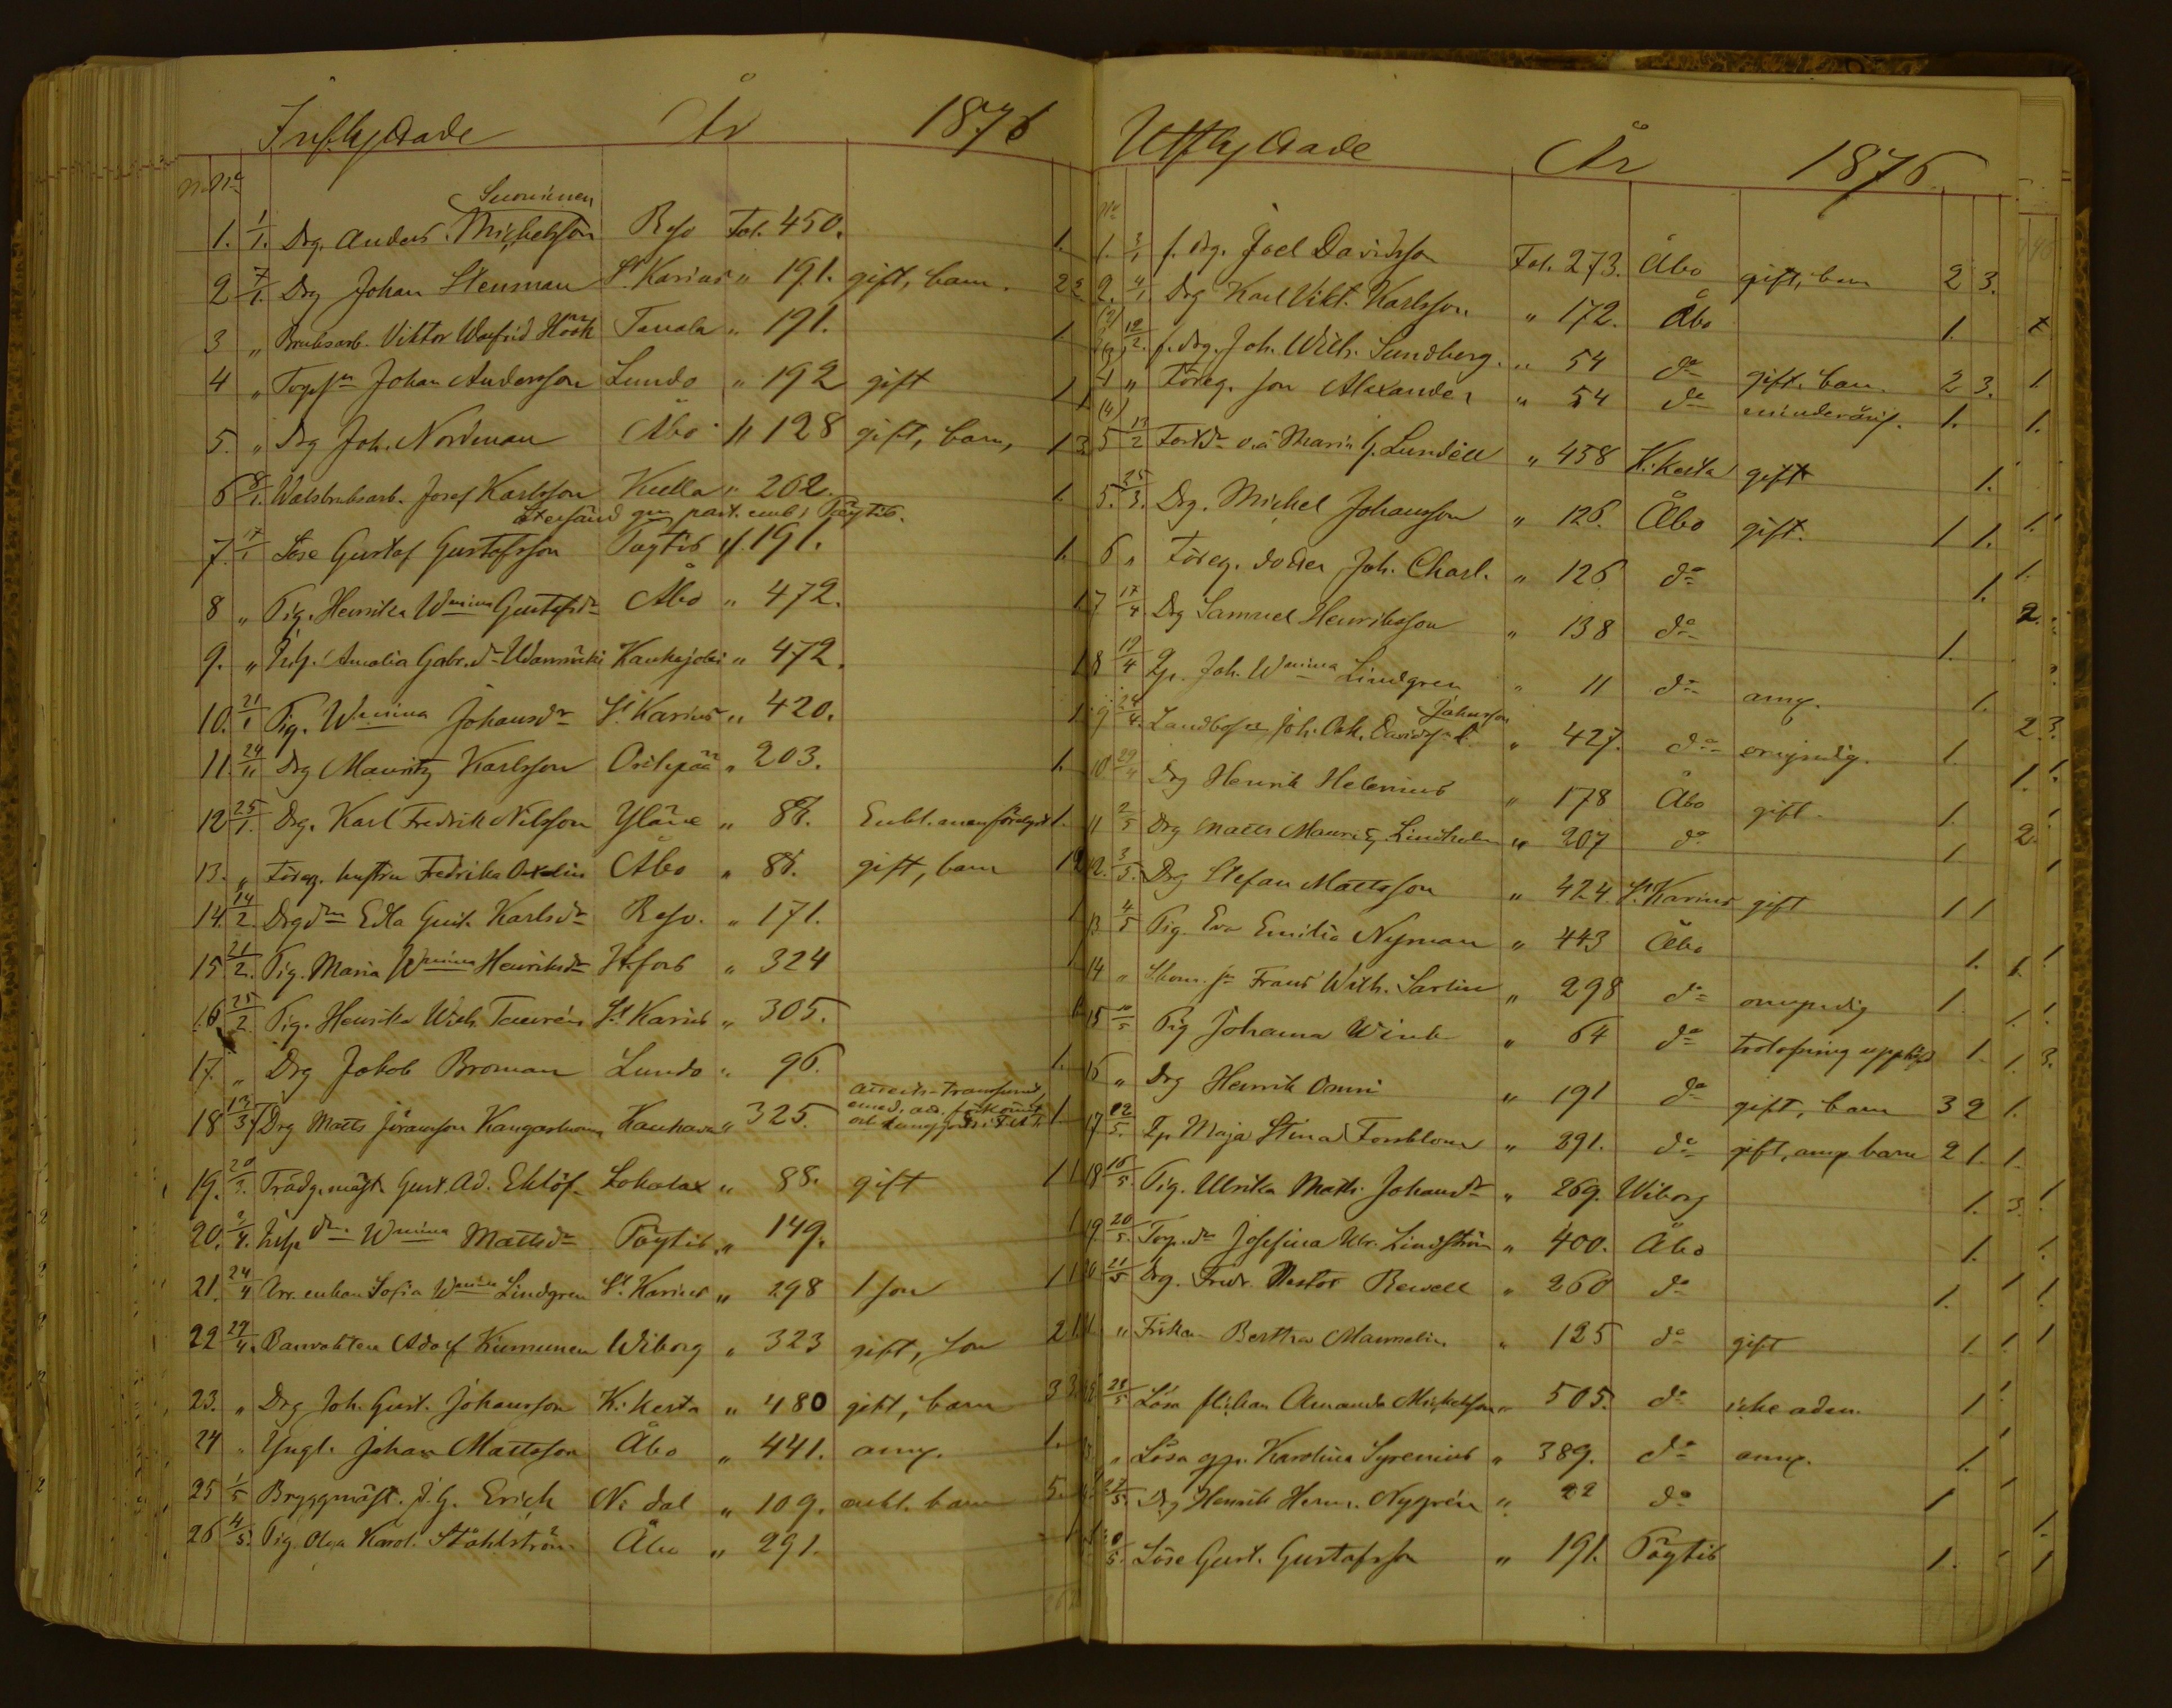 Inflyttade År 1876
No
Suominen
1. 1/1. Drg. Anders Michelsson Reso Fol. 450. 1.
2 7/1. Drg Johan Stenman St Karins " 191. gift, barn. 2 2
3 " Bruksarb. Viktor Walfrid Höök Tenala " 191. 1.
4 " Torpsn Johan Andersson Lundo " 192 gift 1 1
5. " Drg Joh. Nordman Åbo " 128 gift, barn, 1 3
6 8/1. Josef Karlsson Kulla " 262. 1.
Återsänd gm past. emb. i Pöytis.
7. 17/1 Löse Gustaf Gustafsson Pöytis " 191. 1.
8 " Pig. Henrika Wmina Gustafsdr Åbo " 472. 1
9. " Amalia Gabr. dr Kankajoki " 472. 1
10. 21/1 Pig. Wmina Johansdr St Karins " 420. 1
11. 24/11 Drg Mauritz Karlsson Oripää " 203. 1.
12 25/1. Drg. Karl Fredrik Nilsson Yläne " 88. 1.
13. " Föreg. hustru Fredrika Åbo " 88. gift, barn 1 2
14. 14/2. Drgdr Edla Gust. Karlsdr Reso. " 171. 1
15 21/2. Pig. Maria Wmina Henriksdr H:fors " 324 1
16 25/2. Pig. Henrika Wilh. Taurén St Karins " 305.
17. " Drg Jakob Broman Lundo " 96. 1.
18 13/3 Drg Matts Jöransson Kangasluoma Kauhava " 325. 1.
19. 20/3. Trädg.mäst. Gust. Ad. Eklöf Lokalax " 88. gift 1 1
20. 2/4. Wmina Mattsdr Pöytis " 149. 1
21. 24/4 Arr. enkan Sofia Wmina Lindgren St. Karins " 298 1 son 1 1
22 29/4. Banvakten Adolf Kinnunen Wiborg " 323 gift, son 2 1
23. " Drg Joh. Gust. Johansson K:kerta " 480 gift, barn 3 3
24 " Yngl. Johan Mattsson Åbo " 441. ang. 1.
25 1/5 Bryggmäst. J. G. Erich N:dal " 109. enkl. barn 5.
26 4/5. Pig. Olga Karol. Ståhlström Åbo " 291. 1
Utflyttade År 1876.
No
1. 3/1 f. drg. Joel Davidsson Fol. 273. Åbo gift, barn 2 3.
2. 4/1. Drg Karl Vikt. Karlsson " 172. Åbo 1.
12/2. f. drg. Joh. Wilh. Sundberg. " 54 do gift. barn. 2 3.
4 " Föreg. son Alexander " 54 do minderårig. 1.
5 13/2 Maria G. Lundell " 458 K:kerta gift 1.
5. 25/3. Drg. Michel Johansson " 126. Åbo gift. 1 1.
6 " Föreg. dotter Joh. Charl. " 126 do 1.
7 17/4. Drg Samuel Henriksson " 138 do 1.
8 19/4 Joh. Wmina Lindgren " 11 do ang. 1.
Johansson
9 24/4. Landbosn Joh. Osk. Davidsson " 427. do omyndig. 1.
10 29/4 Drg Henrik Helenius " 178 Åbo gift. 1.
11 2/5 Drg Matts Mauritz Lindholm " 207 do 1
12. 3/5. Drg Stefan Mattsson " 424. St. Karins gift 1 1
13 4/5 Pig. Eva Emilia Nyman " 443 Åbo 1.
14 " Skom. sn Frans Wilh. Sarlin " 298 do omyndig 1.
15 10/5 Pig Johanna Wink " 64 do trolofning upphäfd 1.
16 " Drg Henrik Onni " 191 do gift, barn 3 2
17 12/5. Maja Stina Forsblom " 291. do gift, ang. barn 2 1.
18 16/5. Pig. Ulrika Math. Johansdr " 269. Wiborg 1.
19 20/5. Torp.dr Josefina Ulr. Lindström " 400. Åbo 1.
20 21/5 Drg. Fredr. Nestor Rewell " 260 do 1.
" Bertha Mannelin " 125 do gift 1.
28/5. Lösa flickan Amanda Michelsson " 505. do icke adm. 1
" Lösa Karolina Syrenius " 389. do ang. 1.
29/5. Drg Henrik Herm. Nygrén " 22 do 1
30/5. Löse Gust. Gustafsson " 191. Pöytis 1.